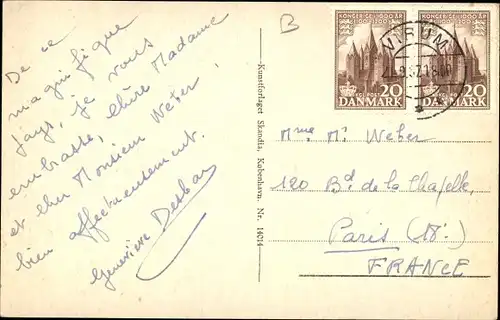 De ce
magnifique
Pays, je vous
embrasse, chère Madame
et cher Monsieur Weber,
bien affectueusement.
Geneviève
Kunstforlaget Skandia, København. Nr. 14014
B
KONGERIGE I 1000 ÅR
KONGERIGE I 1000 ÅR
VIRUM
20
DANMARK
20
DANMARK
Mme Mr Weber
120 Bd de la Chapelle,
Paris (18e)
FRANCE